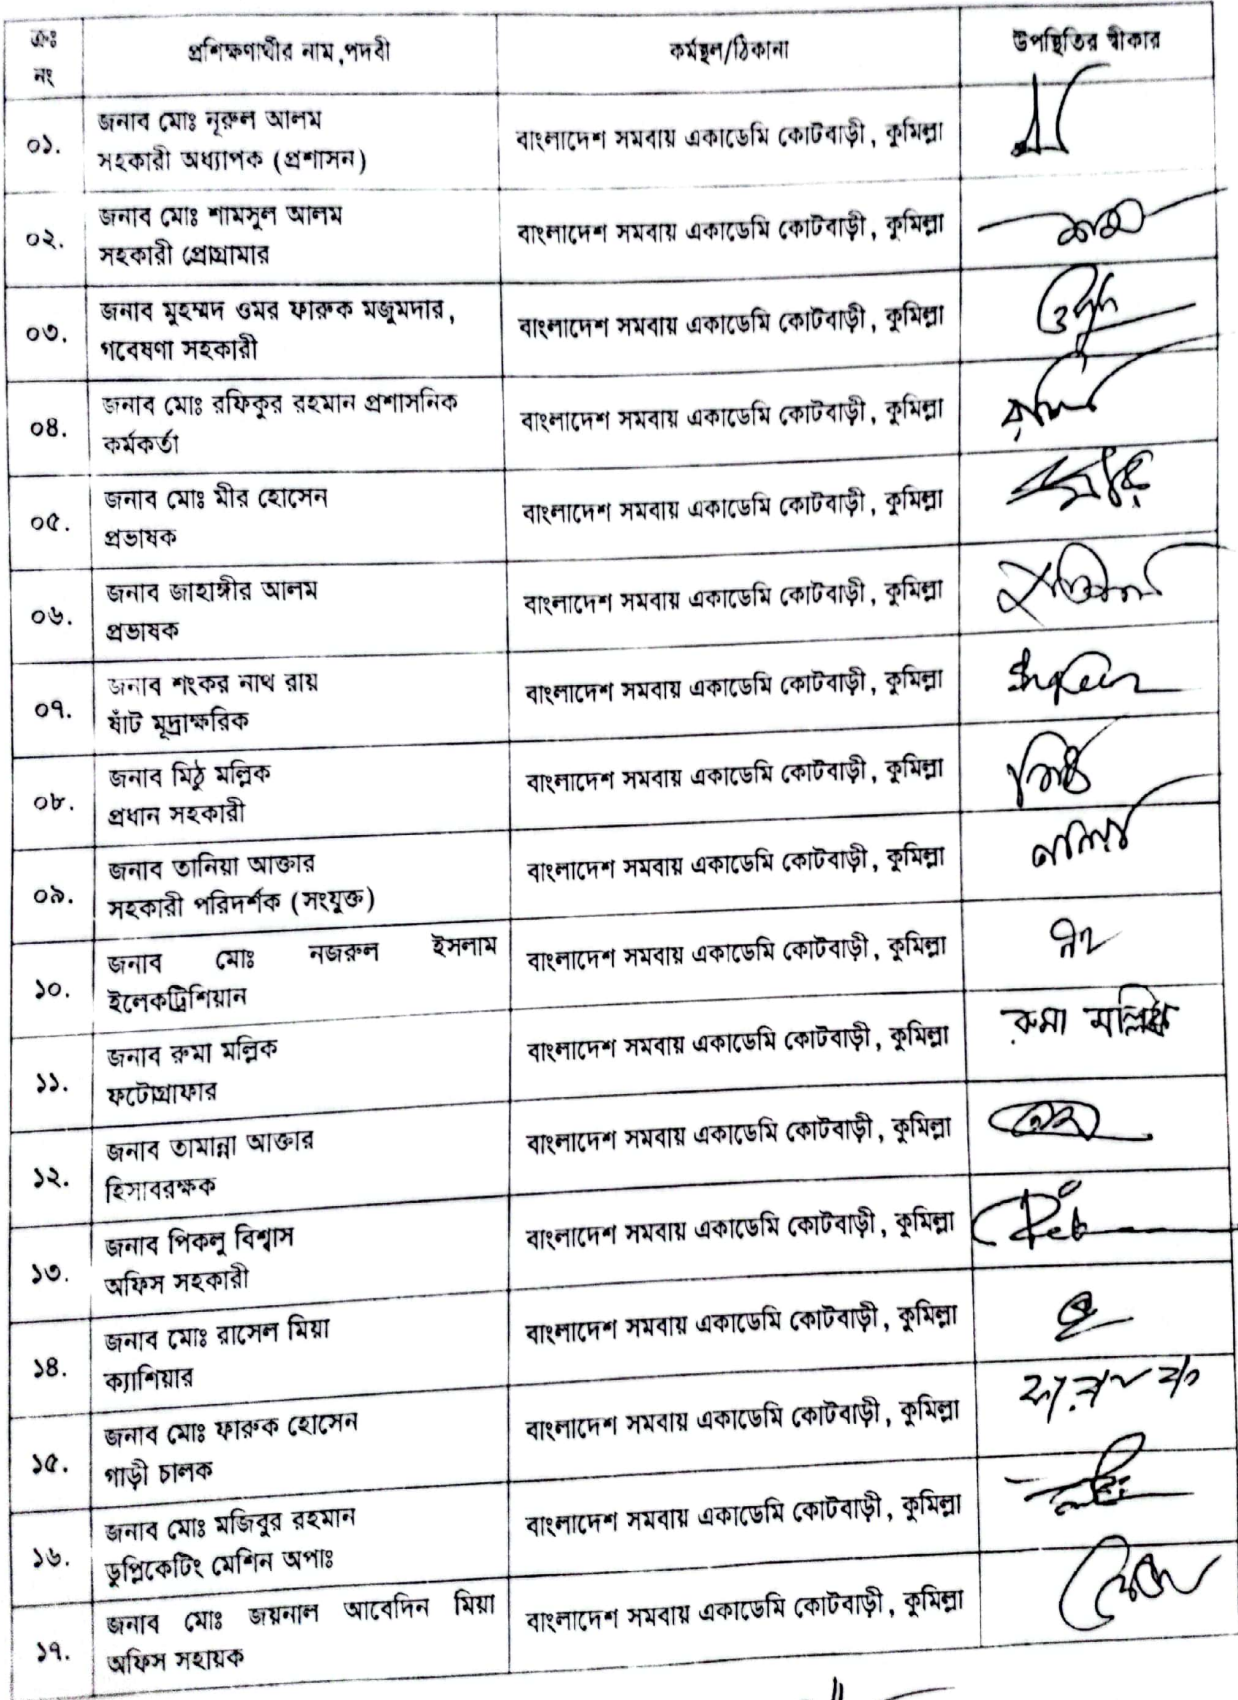 ক্রঃ নং প্রশিক্ষণার্থীর নাম,পদবী কর্মস্থল/ঠিকানা উপস্থিতির স্বীকার
০১. জনাব মোঃ নূরুল আলম
সহকারী অধ্যাপক (প্রশাসন) বাংলাদেশ সমবায় একাডেমি কোটবাড়ী, কুমিল্লা
০২. জনাব মোঃ শামসুল আলম
সহকারী প্রোগ্রামার বাংলাদেশ সমবায় একাডেমি কোটবাড়ী, কুমিল্লা
০৩. জনাব মুহম্মদ ওমর ফারুক মজুমদার,
গবেষণা সহকারী বাংলাদেশ সমবায় একাডেমি কোটবাড়ী, কুমিল্লা
০৪. জনাব মোঃ রফিকুর রহমান প্রশাসনিক
কর্মকর্তা বাংলাদেশ সমবায় একাডেমি কোটবাড়ী, কুমিল্লা
০৫. জনাব মোঃ মীর হোসেন
প্রভাষক বাংলাদেশ সমবায় একাডেমি কোটবাড়ী, কুমিল্লা
০৬. জনাব জাহাঙ্গীর আলম
প্রভাষক বাংলাদেশ সমবায় একাডেমি কোটবাড়ী, কুমিল্লা
০৭. জনাব শংকর নাথ রায়
ষাঁট মূদ্রাক্ষরিক বাংলাদেশ সমবায় একাডেমি কোটবাড়ী, কুমিল্লা
০৮. জনাব মিঠু মল্লিক
প্রধান সহকারী বাংলাদেশ সমবায় একাডেমি কোটবাড়ী, কুমিল্লা
০৯. জনাব তানিয়া আক্তার
সহকারী পরিদর্শক (সংযুক্ত) বাংলাদেশ সমবায় একাডেমি কোটবাড়ী, কুমিল্লা
১০. জনাব মোঃ নজরুল ইসলাম
ইলেকট্রিশিয়ান বাংলাদেশ সমবায় একাডেমি কোটবাড়ী, কুমিল্লা
১১. জনাব রুমা মল্লিক
ফটোগ্রাফার বাংলাদেশ সমবায় একাডেমি কোটবাড়ী, কুমিল্লা রুমা মল্লিক
১২. জনাব তামান্না আক্তার
হিসাবরক্ষক বাংলাদেশ সমবায় একাডেমি কোটবাড়ী, কুমিল্লা
১৩. জনাব পিকলু বিশ্বাস
অফিস সহকারী বাংলাদেশ সমবায় একাডেমি কোটবাড়ী, কুমিল্লা
১৪. জনাব মোঃ রাসেল মিয়া
ক্যাশিয়ার বাংলাদেশ সমবায় একাডেমি কোটবাড়ী, কুমিল্লা
১৫. জনাব মোঃ ফারুক হোসেন
গাড়ী চালক বাংলাদেশ সমবায় একাডেমি কোটবাড়ী, কুমিল্লা
১৬. জনাব মোঃ মজিবুর রহমান
ডুপ্লিকেটিং মেশিন অপাঃ বাংলাদেশ সমবায় একাডেমি কোটবাড়ী, কুমিল্লা
১৭. জনাব মোঃ জয়নাল আবেদিন মিয়া
অফিস সহায়ক বাংলাদেশ সমবায় একাডেমি কোটবাড়ী, কুমিল্লা